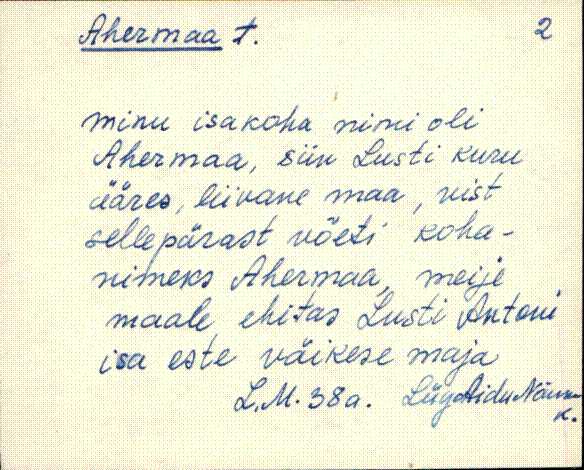 Ahermaa t. 2
minu isakoha nimi oli
Ahermaa, siin Lusti kuru
ääres, liivane maa, vist
sellepärast võeti koha-
nimeks Ahermaa, meije
maale ehitas Lusti Antoni
isa este väikese maja
L.M. 38a. Lüg Aidu Nõmme
k.